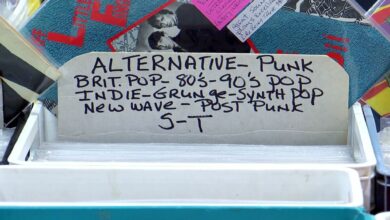 ALTERNATIVE- PUNK
BRIT. POP- 80's- 90's POP
INDIE-GRUNGE-SYNTH POP
NEW WAVE- POST PUNK
S-T